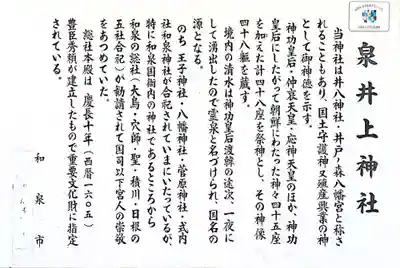 泉井上神社
当神社は井ノ八神社・井戸ノ森八幡宮と称さ
れることもあり、国土守護神又殖産興業の神
として御神徳を示す。
神功皇后・仲哀天皇・応神天皇のほか、神功
皇后にしたがって朝鮮にわたった神々四十五座
を加えた計四十八座を祭神とし、その神像
四十八躯を蔵す。
境内の清水は神功皇后渡韓の途次、一夜に
して湧出したので霊泉と名づけられ、国名の
源となる。
のち王子神社・八幡神社・菅原神社・式内
社和泉神社が合祀されていまにいたっているが、
特に和泉国衙内の神社であるところから
和泉の総社（大鳥・穴師・聖・積川・日根の
五社合祀）が勧請されて国司以下官人の崇敬
をあつめていた。
総社本殿は 慶長十年（西暦一六〇五）
豊臣秀頼が建立したもので重要文化財に指定
されている。
和泉市